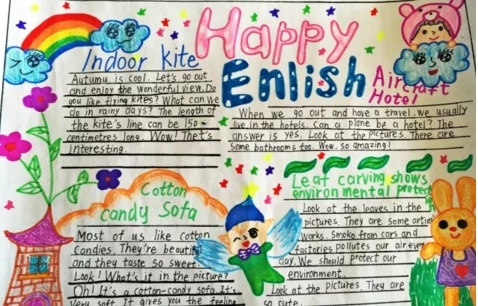 Happy
Enlish
Indoor kite
Autumu is cool. Let's go out
and enjoy the wonderful view. Do
you like flying kites? What can we
do in rainy days? The length of
the kite's line can be 150
centimetres long. Wow! That's
interesting.
Aircraft
Hotel
When we go out and have a travel, we usually
live in the hotels. Can a plane be a hotel? The
answer is yes. Look at the pictures. There are
some bathrooms too. Wow, so amazing!
Cotton
candy Sofa
Most of us like Cotton
Candies. They're beauti
and they taste so swee
Look! What's it in the picture?
Oh! It's a cotton-candy sofa. It's
Very soft. It gives you the feeling
Leaf carving shows
environmental protect
Look of the leaves in the
pictures. They are some artic
Works. Smoke from cars and
factories pollutes our air ever
day. We should protect our
environment.
Look at the pictures. They are
so cute.